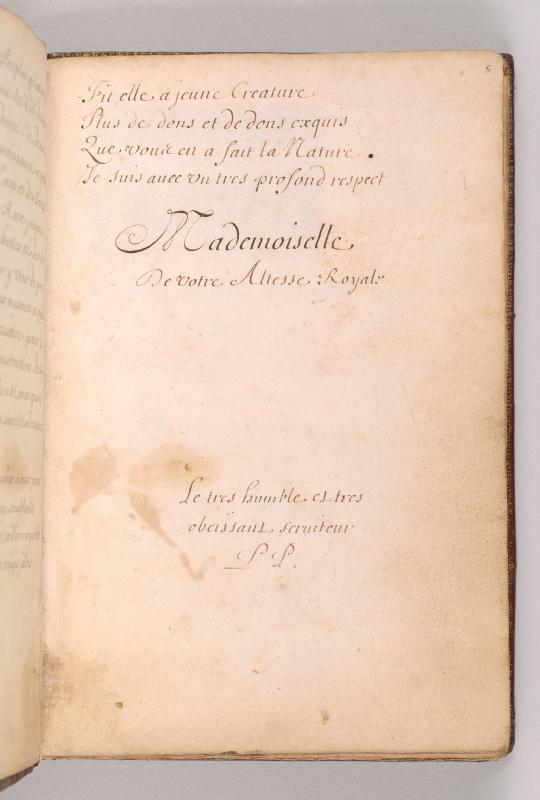 5
Fit elle a jeune Creature
Plus de dons et de dons exquis
Que vous en a fait la Nature.
Je suis avec vn tres profond respect
Mademoiselle
De votre Altesse Royale
Le tres humble et tres
obeissant seruiteur
P P.